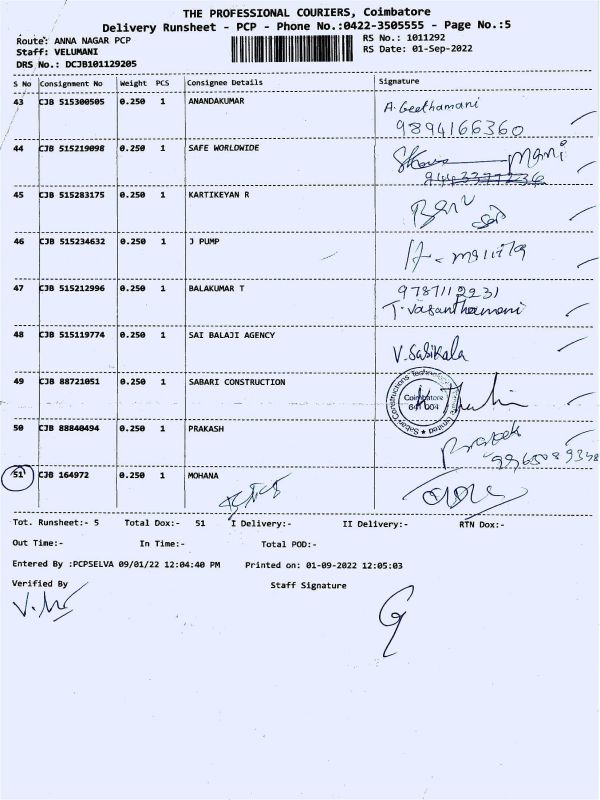 THE PROFESSIONAL COURIERS, Coimbatore
Delivery Runsheet - PCP - Phone No.:0422-3505555 - Page No.:5
Route: ANNA NAGAR PCP
RS No.: 1011292
Staff: VELUMANI
RS Date: 01-Sep-2022
DRS No.: DCJB101129205
S No Consignment No Weight PCS Consignee Details Signature
43 CJB 515300505 0.250 1 ANANDAKUMAR A. Geethamani
9894166360
44 CJB 515219098 0.250 1 SAFE WORLDWIDE Mani
45 CJB 515283175 0.250 1 KARTIKEYAN R
46 CJB 515234632 0.250 1 J PUMP
47 CJB 515212996 0.250 1 BALAKUMAR T 9787112231
T. Vasanthamani
48 CJB 515119774 0.250 1 SAI BALAJI AGENCY V. Sasikala
49 CJB 88721051 0.250 1 SABARI CONSTRUCTION
Coimbatore
641 004
50 CJB 88840494 0.250 1 PRAKASH
51 CJB 164972 0.250 1 MOHANA
Tot. Runsheet:- 5 Total Dox:- 51 I Delivery:- II Delivery:- RTN Dox:-
Out Time:- In Time:- Total POD:-
Entered By :PCPSELVA 09/01/22 12:04:40 PM Printed on: 01-09-2022 12:05:03
Verified By Staff Signature